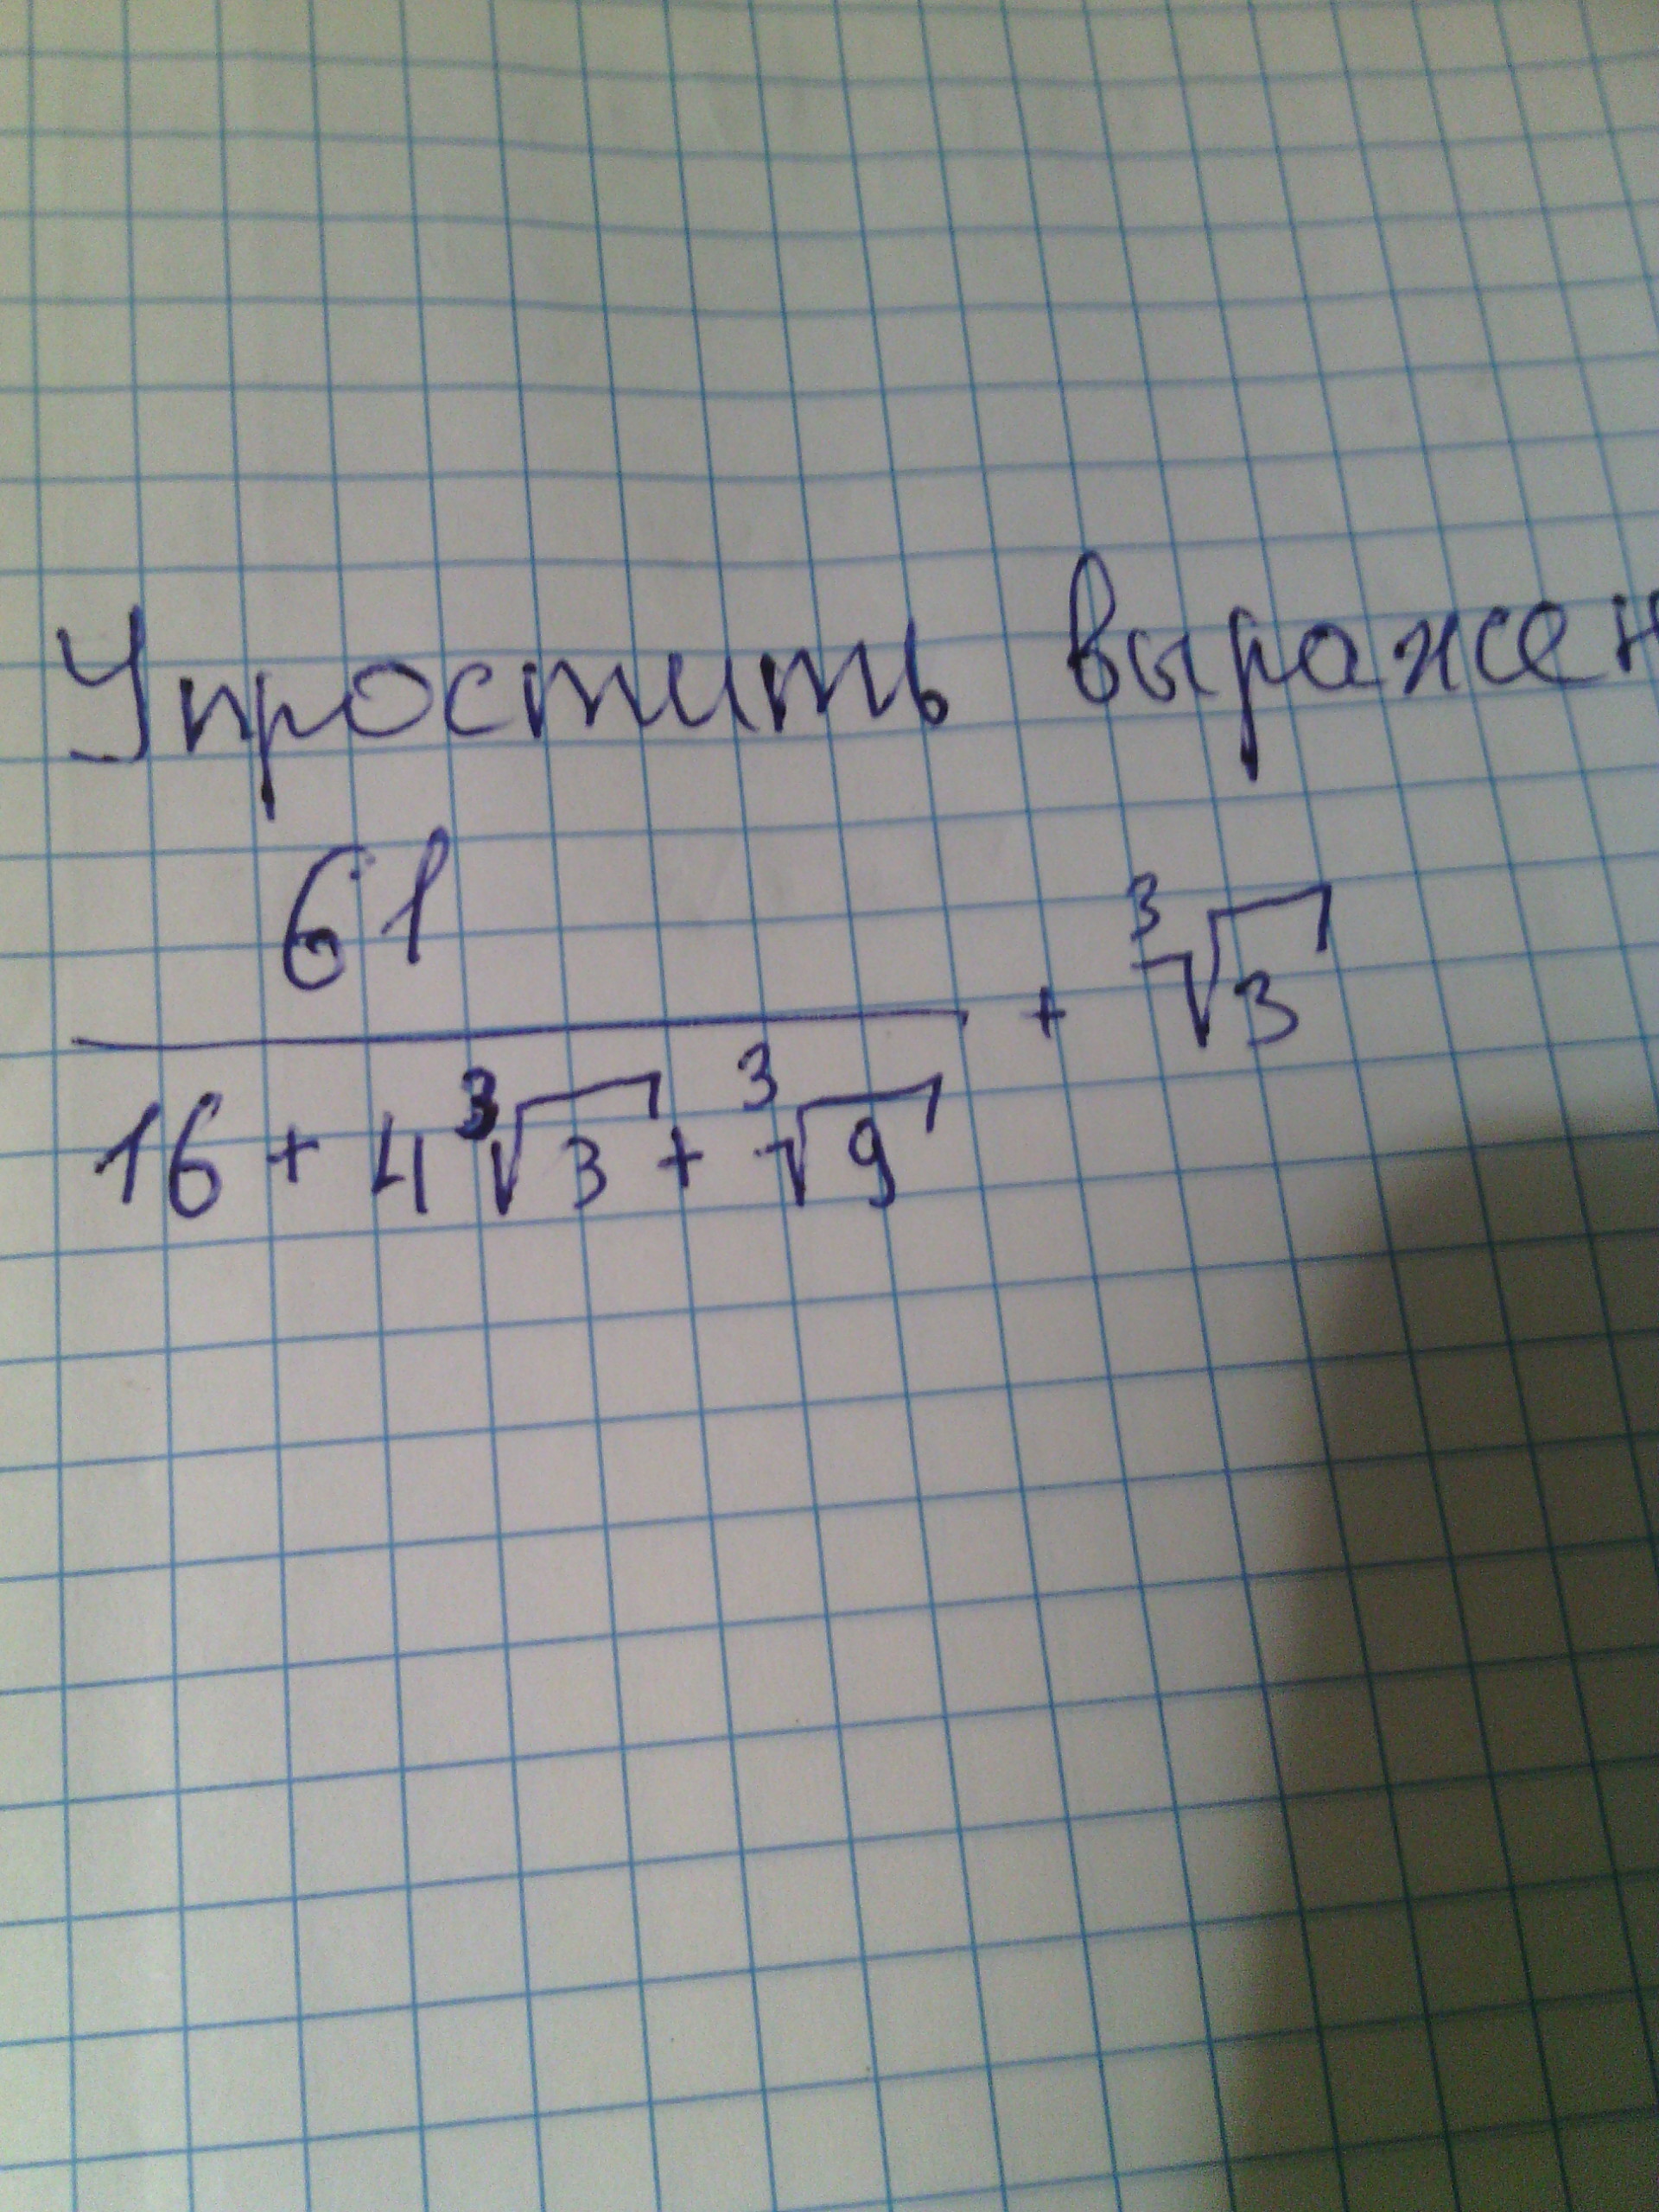 Упростить выражен
61 / (16 + 4∛3 + ∛9) + ∛3